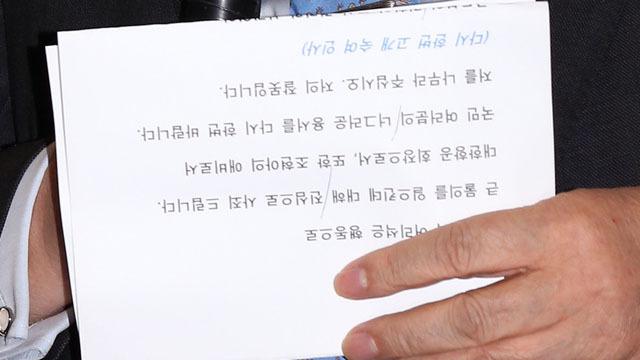 어리석은 행동으로
큰 물의를 일으킨데 대해 진심으로 사죄 드립니다.
대한항공 회장으로서, 또한 조현아의 애비로서
국민 여러분의 너그러운 용서를 다시 한번 바랍니다.
저를 나무라 주십시오. 저의 잘못입니다.
(다시 한번 고개 숙여 인사)